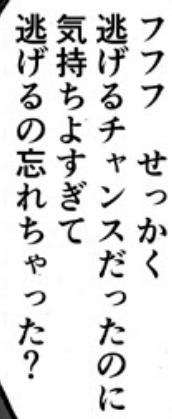 フフフ　せっかく
逃げるチャンスだったのに
気持ちよすぎて
逃げるの忘れちゃった？